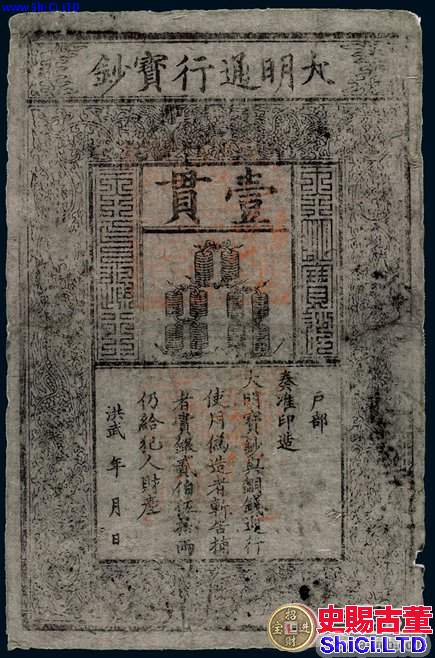 www.ShiCi.LTD
大明通行寶鈔
壹貫
戶部
奏准印造
大明寶鈔與銅錢通行
使用僞造者斬告捕
者賞銀貳伯伍拾兩
仍給犯人財產
洪武 年 月 日
招財進宝
史賜古董
ShiCi.LTD